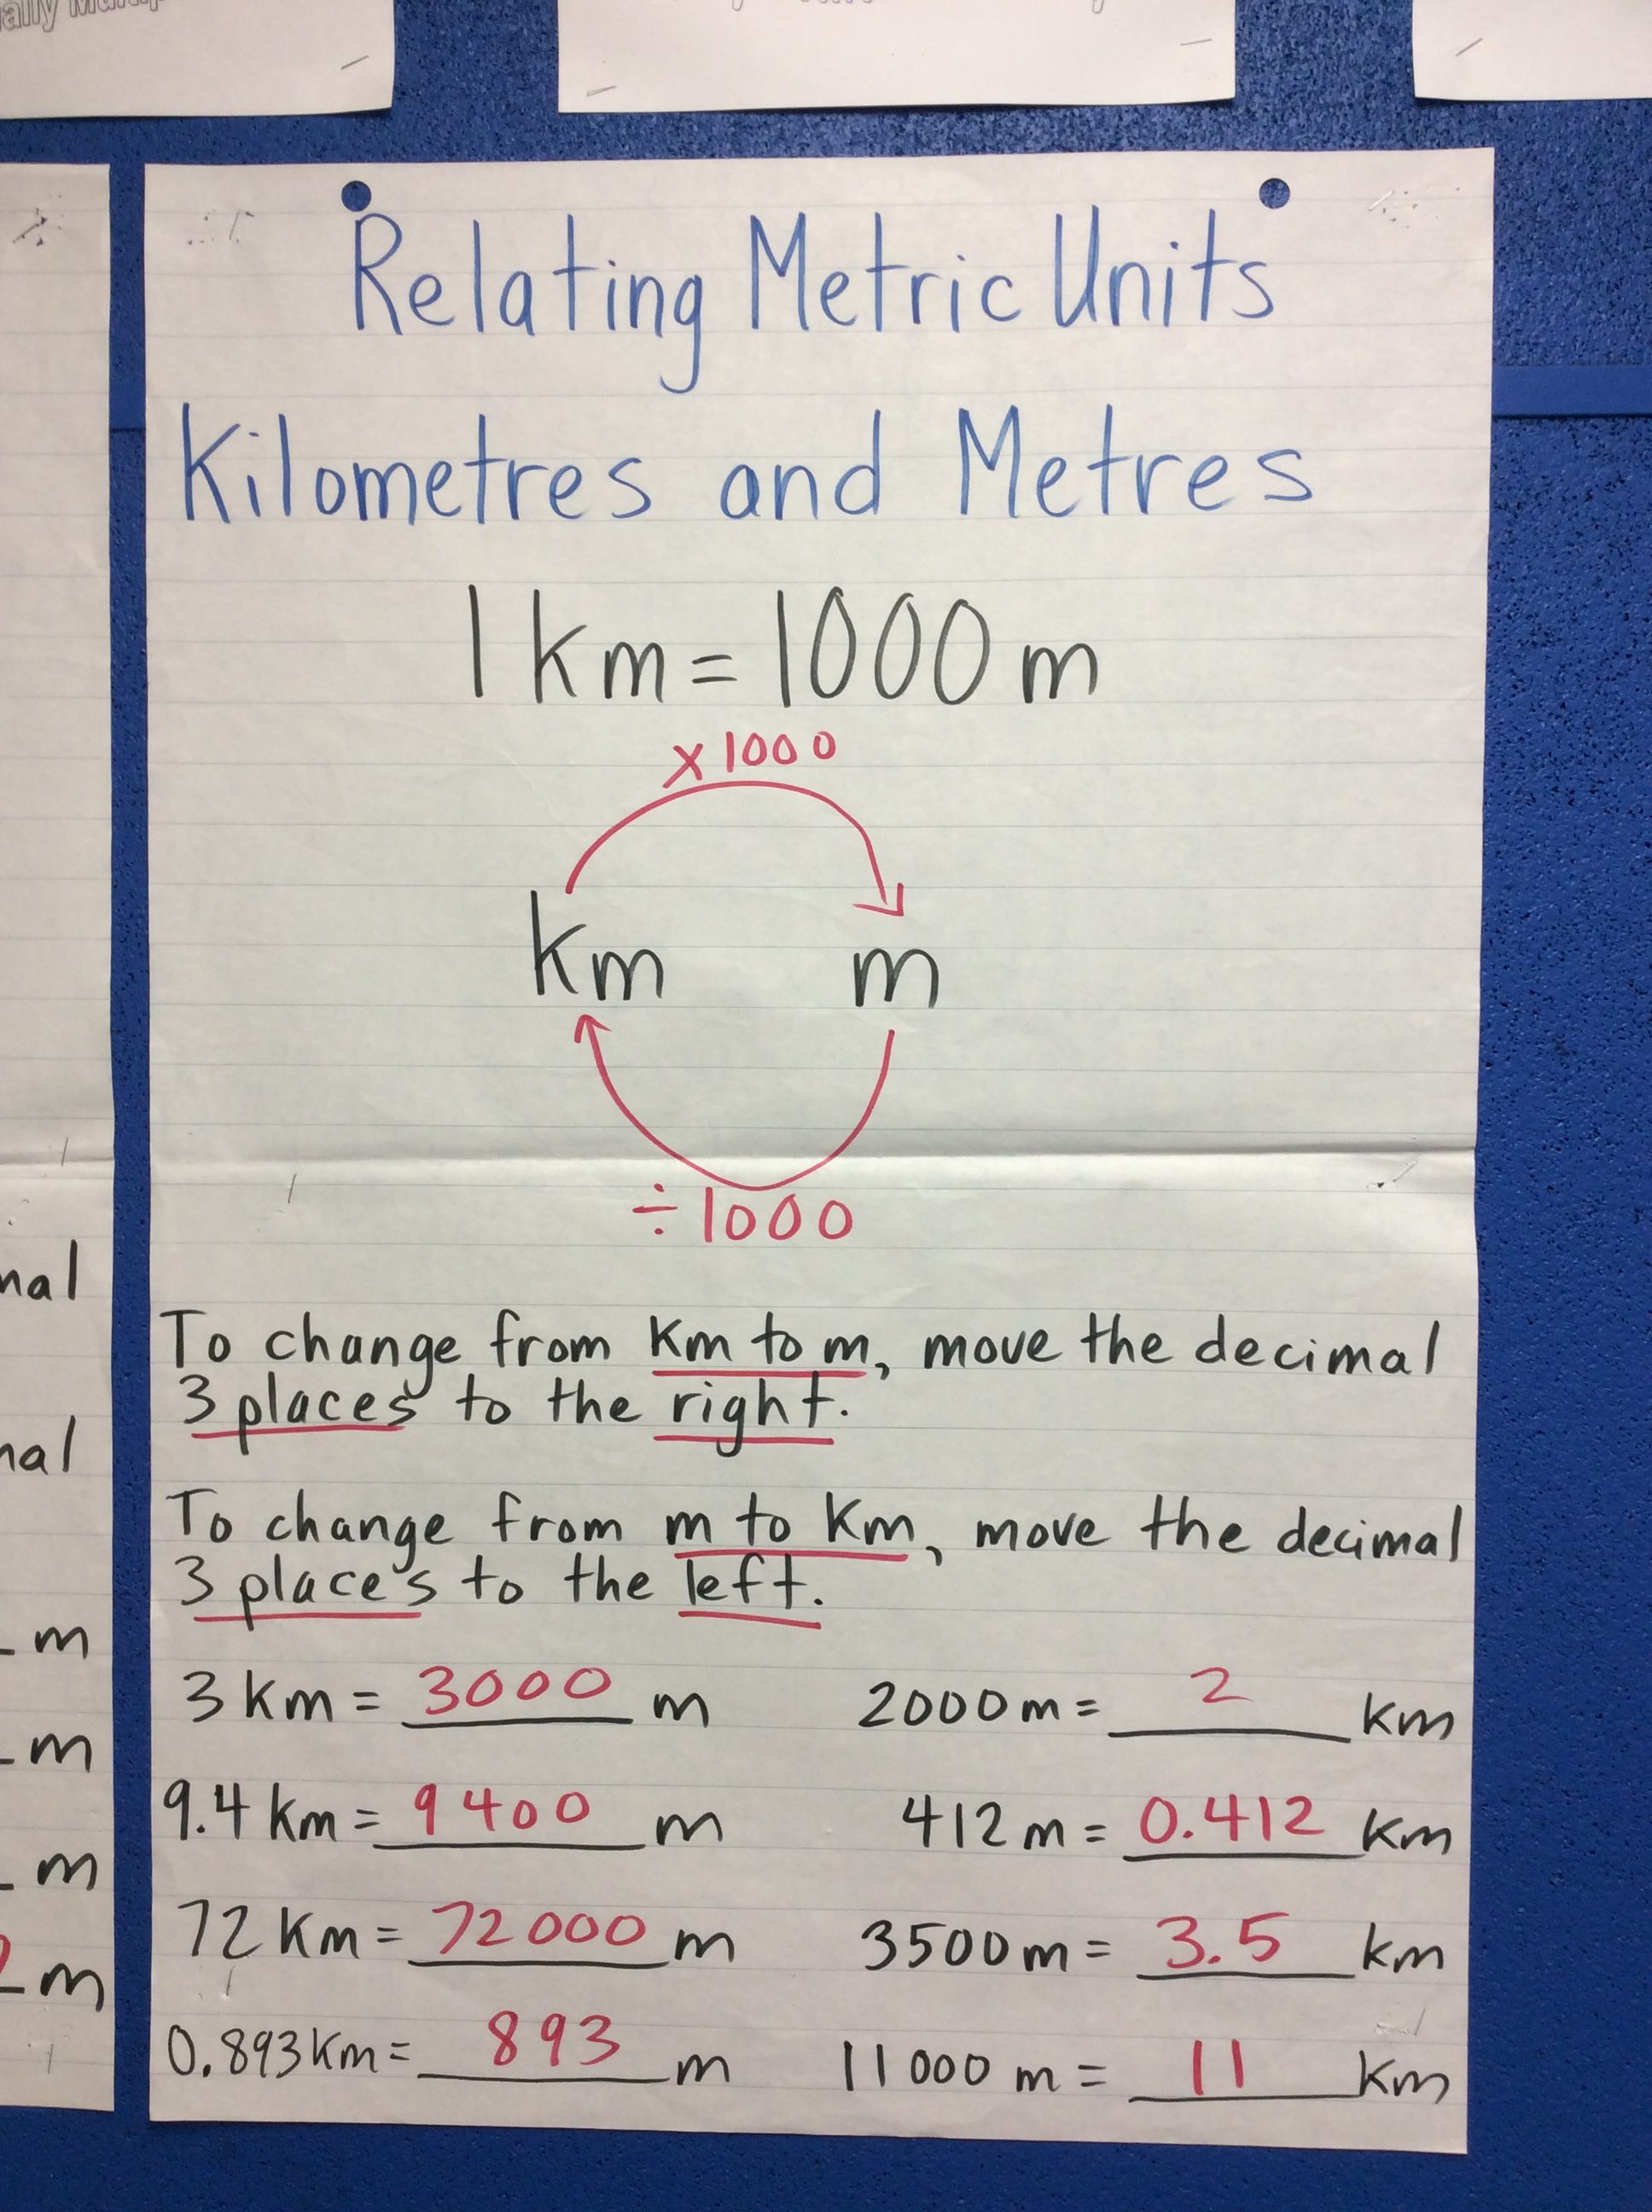 Relating Metric Units
Kilometres and Metres
1 km = 1000 m
x 1000
km m
÷ 1000
To change from km to m, move the decimal
3 places to the right.
To change from m to km, move the decimal
3 places to the left.
3 km = 3000 m 2000 m = 2 km
9.4 km = 9400 m 412 m = 0.412 km
72 km = 72000 m 3500 m = 3.5 km
0.893 km = 893 m 11 000 m = 11 km
m
m
m
m